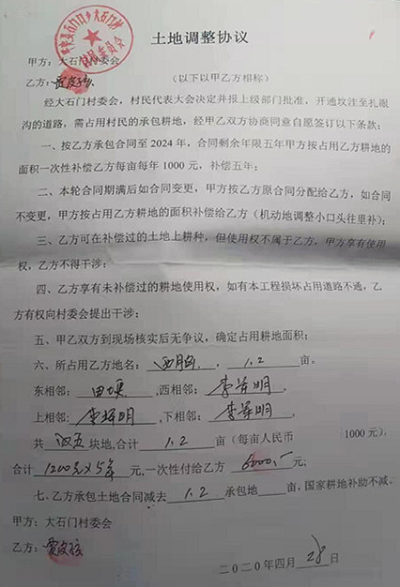 土地调整协议
甲方：大石门村委会
乙方：
（以下以甲乙方相称）
经大石门村委会，村民代表大会决定并报上级部门批准，开通坟洼至扎眼
沟的道路，需占用村民的承包耕地，经甲乙双方协商同意自愿签订以下条款：
一、按乙方承包合同至 2024 年，合同剩余年限五年甲方按占用乙方耕地的
面积一次性补偿乙方每亩每年 1000 元，补偿五年；
二、本轮合同期满后如合同变更，甲方按乙方原合同分配给乙方，如合同
不变更，甲方按占用乙方耕地的面积补偿给乙方（机动地调整小口头往里补）；
三、乙方可在补偿过的土地上耕种，但使用权不属于乙方，甲方享有使用
权，乙方不得干涉；
四、乙方享有未补偿过的耕地使用权，如有本工程损坏占用道路不通，乙
方有权向村委会提出干涉；
五、甲乙双方到现场核实后无争议，确定占用耕地面积；
六、所占用乙方地名： 1.2 亩。
东相邻： 田埂 ,西相邻： 明
上相邻： 明 ,下相邻： 明
共 块地,合计 1.2 亩（每亩人民币 1000 元），
合计 1200元×5年 元,一次性付给乙方 6000 元;
七、乙方承包土地合同减去 1.2 承包地 亩，国家耕地补助不减。
甲方：大石门村委会
乙方：
二０二０年四月 28 日